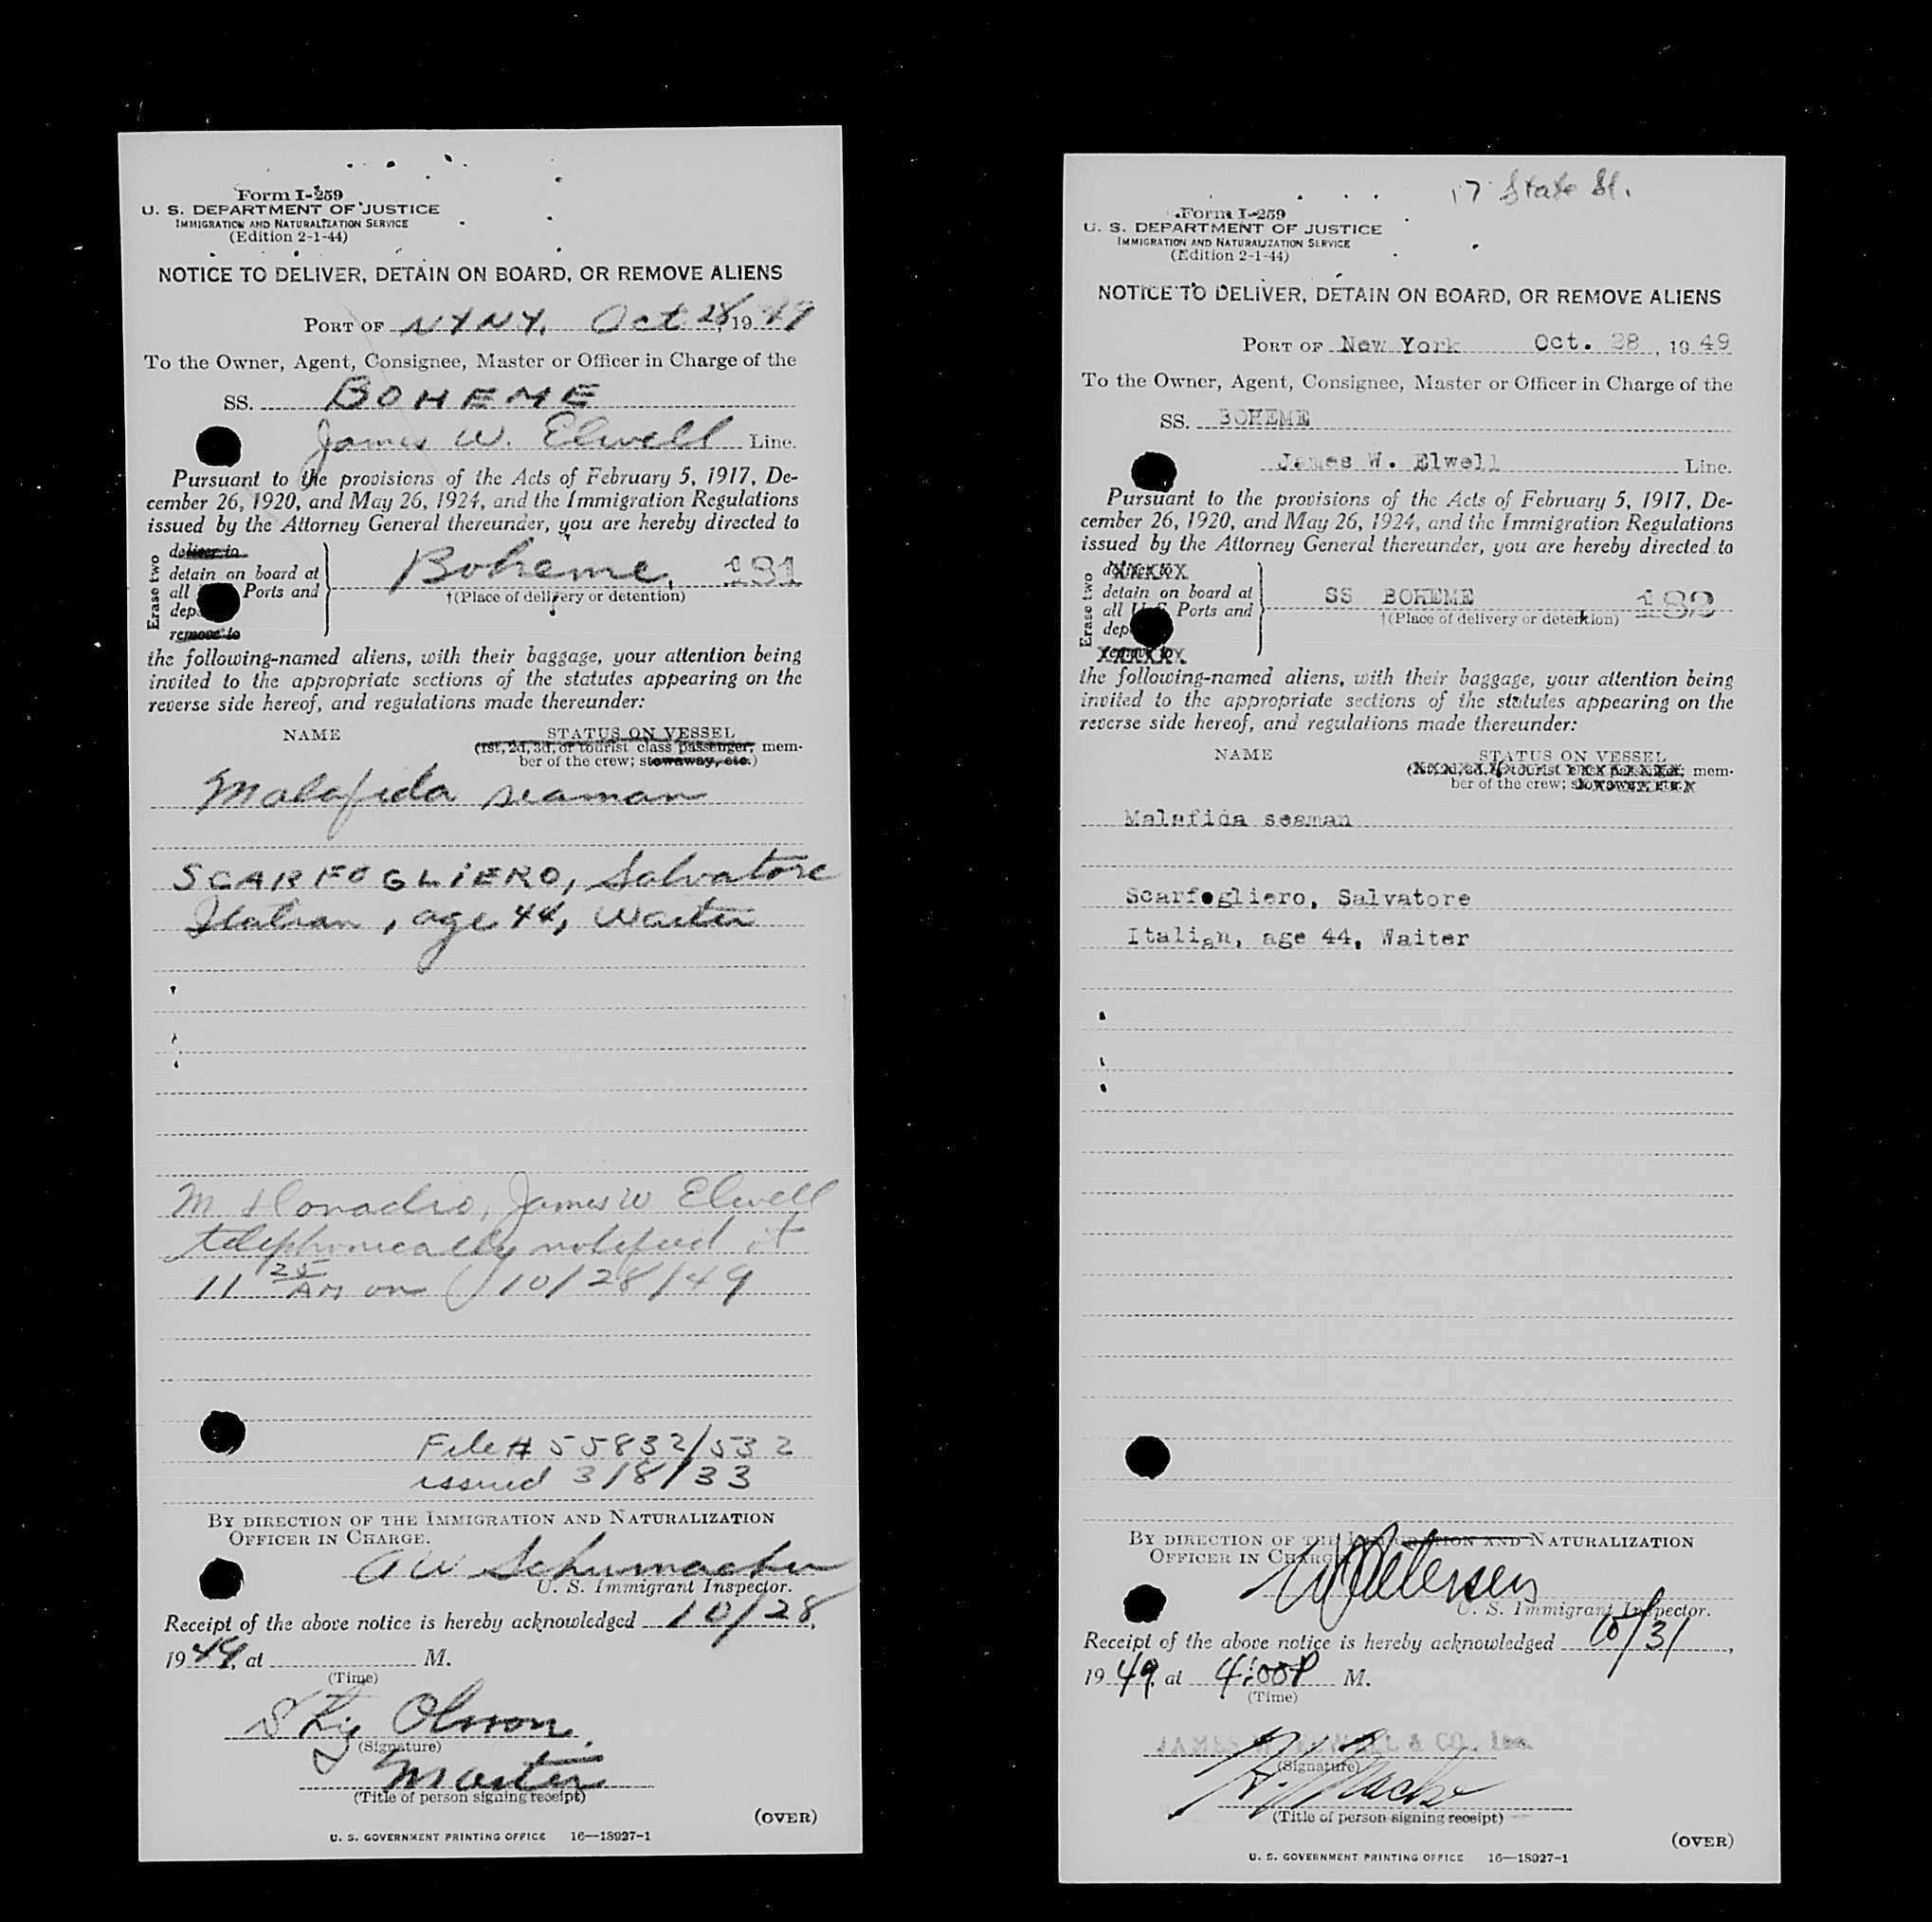 Form I-259
U. S. DEPARTMENT OF JUSTICE
IMMIGRATION AND NATURALIZATION SERVICE
(Edition 2-1-44)
NOTICE TO DELIVER, DETAIN ON BOARD, OR REMOVE ALIENS
PORT OF NYNY. Oct 28, 1949
To the Owner, Agent, Consignee, Master or Officer in Charge of the
SS. BOHEME
James W. Elwell Line.
Pursuant to the provisions of the Acts of February 5, 1917, De-
cember 26, 1920, and May 26, 1924, and the Immigration Regulations
issued by the Attorney General thereunder, you are hereby directed to
Erase two
deliver to
detain on board at
all Ports and
dep
remove to
Boheme, 181
†(Place of delivery or detention)
the following-named aliens, with their baggage, your attention being
invited to the appropriate sections of the statutes appearing on the
reverse side hereof, and regulations made thereunder:
NAME STATUS ON VESSEL
(1st, 2d, 3d, or tourist class passenger, mem-
ber of the crew; stowaway, etc.)
Malafida seaman
SCARFOGLIERO, Salvatore
Italian, age 44, Waiter
M James W Elwell
telephonically notified
11 25 AM on 10/28/49
File # 55832/532
issued 3/8/33
BY DIRECTION OF THE IMMIGRATION AND NATURALIZATION
OFFICER IN CHARGE.
A W Schumacher
U. S. Immigrant Inspector.
Receipt of the above notice is hereby acknowledged 10/28,
1949, at M.
(Time)
Stig Olsson
(Signature)
Master
(Title of person signing receipt)
(OVER)
U. S. GOVERNMENT PRINTING OFFICE 16—18927-1
17 State St.
Form I-259
U. S. DEPARTMENT OF JUSTICE
IMMIGRATION AND NATURALIZATION SERVICE
(Edition 2-1-44)
NOTICE TO DELIVER, DETAIN ON BOARD, OR REMOVE ALIENS
PORT OF New York Oct. 28, 1949
To the Owner, Agent, Consignee, Master or Officer in Charge of the
SS. BOHEME
James W. Elwell Line.
Pursuant to the provisions of the Acts of February 5, 1917, De-
cember 26, 1920, and May 26, 1924, and the Immigration Regulations
issued by the Attorney General thereunder, you are hereby directed to
Erase two
deliver to
detain on board at
all U.S. Ports and
dep
remove to
SS BOHEME 182
†(Place of delivery or detention)
the following-named aliens, with their baggage, your attention being
invited to the appropriate sections of the statutes appearing on the
reverse side hereof, and regulations made thereunder:
NAME STATUS ON VESSEL
(1st, 2d, 3d, or tourist class passenger, mem-
ber of the crew; stowaway, etc.)
Malafida seaman
Scarfogliero, Salvatore
Italian, age 44, Waiter
BY DIRECTION OF THE IMMIGRATION AND NATURALIZATION
OFFICER IN CHARGE
U. S. Immigrant Inspector.
Receipt of the above notice is hereby acknowledged 10/31,
1949, at 4:00 P M.
(Time)
JAMES W. ELWELL & CO., Inc.
(Signature)
(Title of person signing receipt)
(OVER)
U. S. GOVERNMENT PRINTING OFFICE 16—18927-1